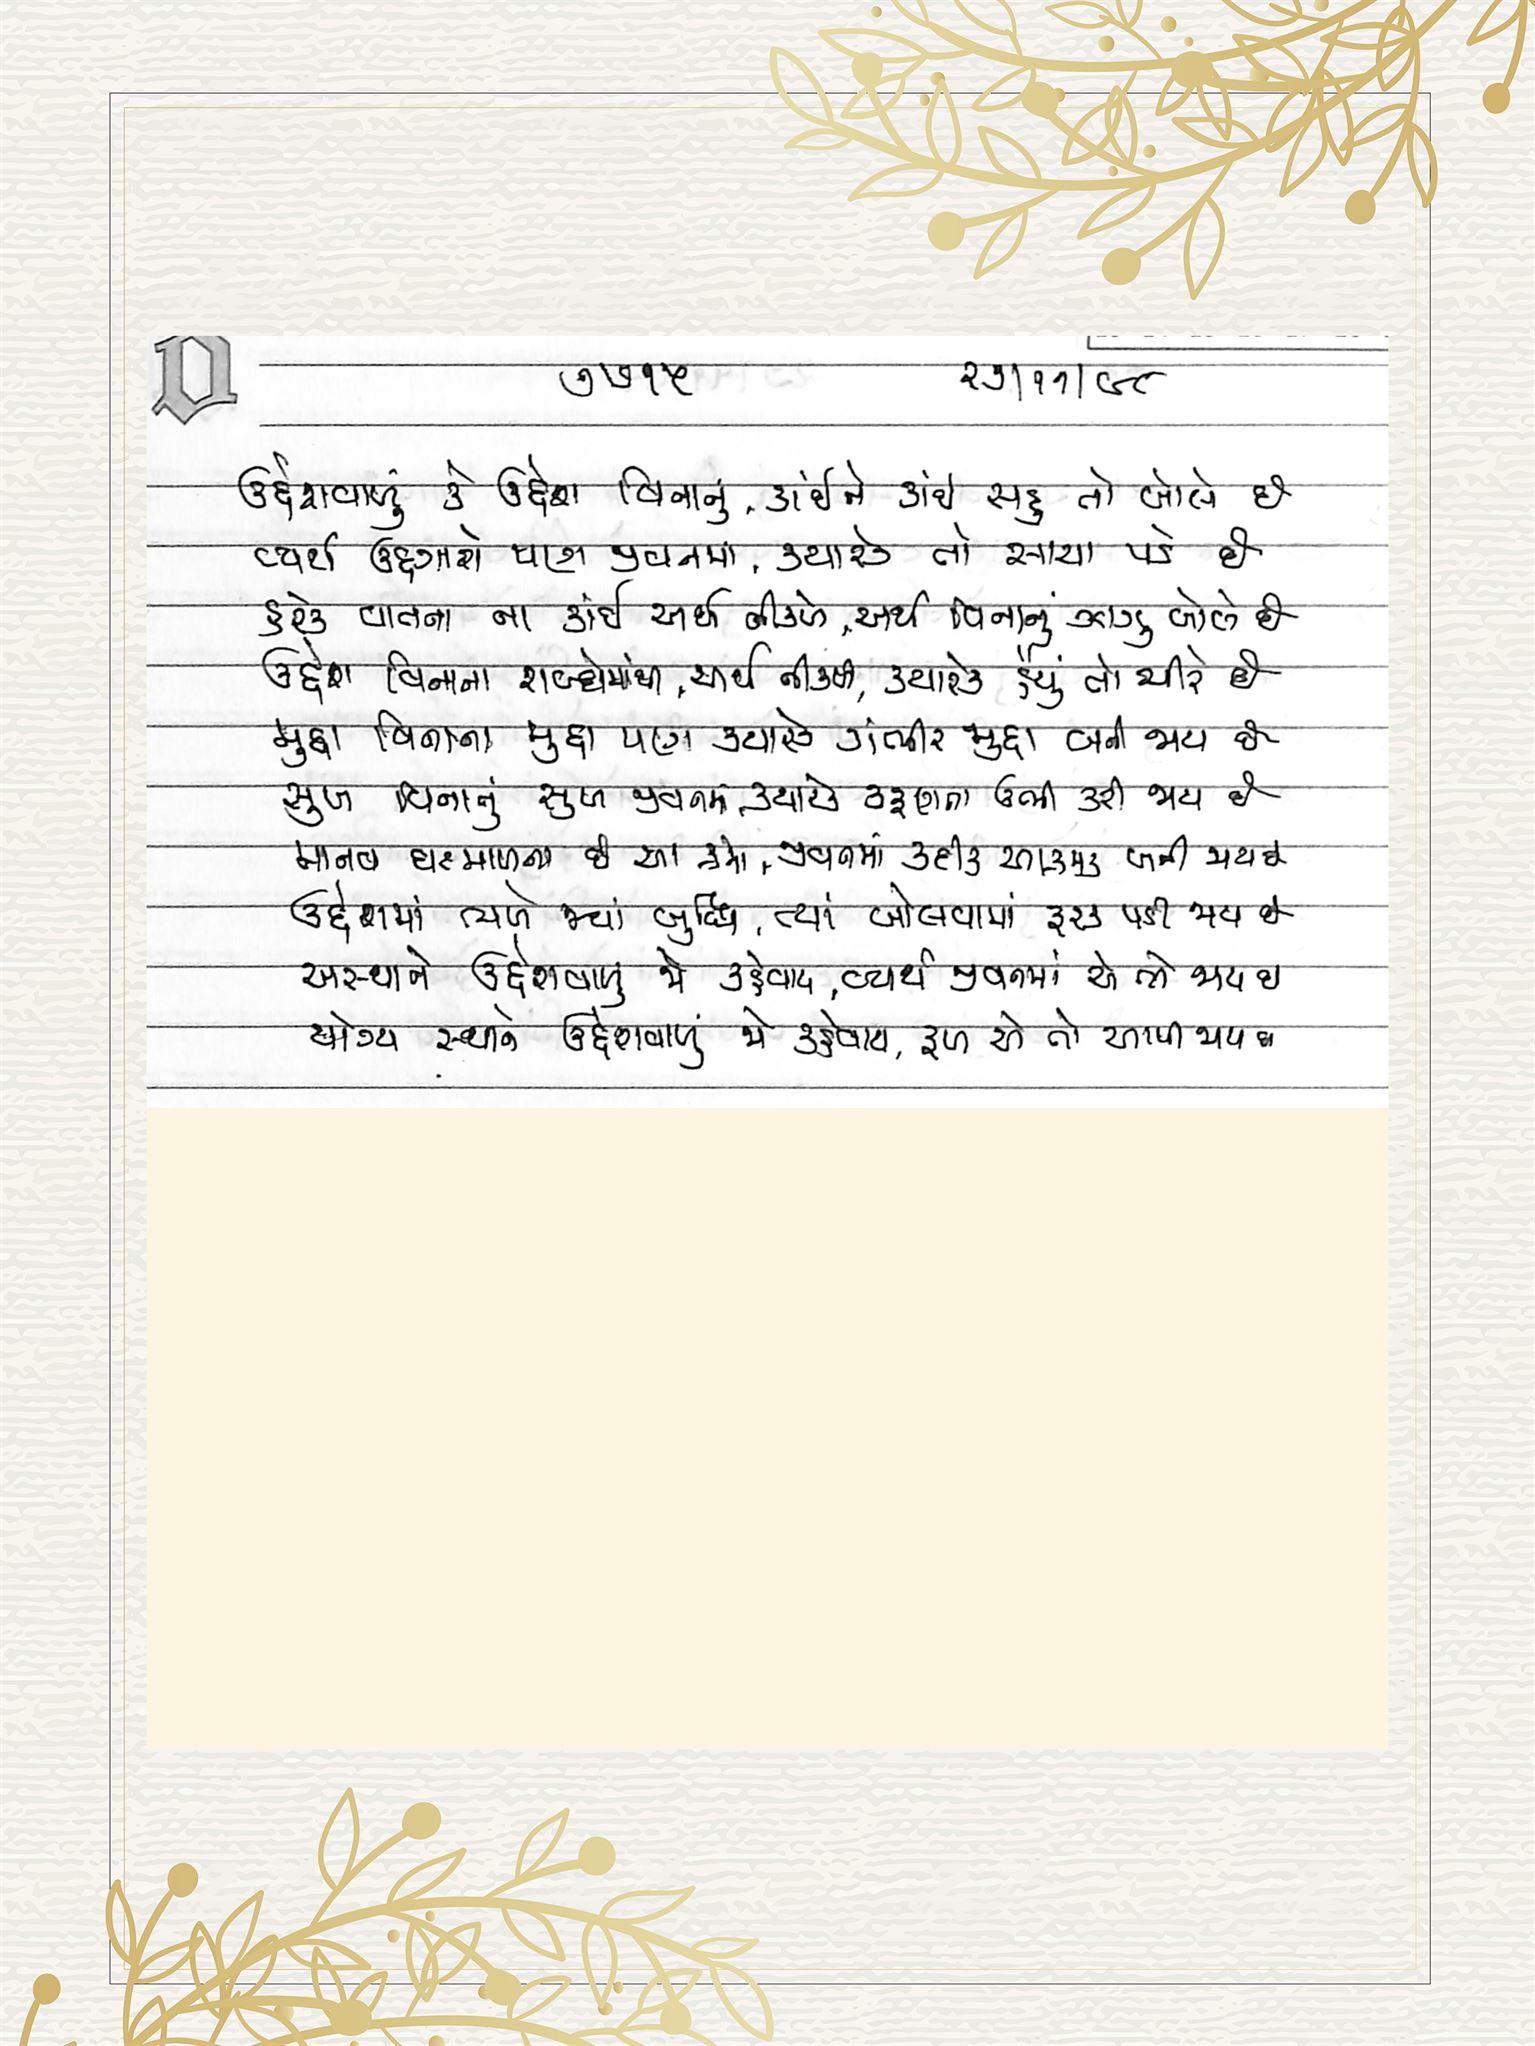 ૭૭૧૫ ૨૭/૧૧/૯૮
ઉદ્દેશવાળું કે ઉદ્દેશ વિનાનું, કાંઈને કાંઈ સહુ તો બોલે છે
વ્યર્થ ઉદ્દગારો પણ જીવનમાં, ક્યારેક તો સાચા પડે છે
દરેક વાતના ના કાંઈ અર્થ નીકળે, અર્થ વિનાનું બોલે છે
ઉદ્દેશ વિનાના શબ્દોમાંથી, અર્થ નીકળી, ક્યારેક હૈયું તો ચીરે છે
મુદ્દા વિનાના મુદ્દા પણ ક્યારેક ગંભીર મુદ્દા બની જાય છે
સુખ વિનાનું સુખ જીવનમાં, ક્યારેક કરૂણતા ઊભી કરી જાય છે
માનવ ઘટમાળના છે આ ક્રમો, જીવનમાં કદીક બની જાય છે
ઉદ્દેશમાં ત્યજે જ્યાં બુદ્ધિ, ત્યાં બોલવામાં ફરક પડી જાય છે
અસ્થાને ઉદ્દેશવાળું જો કહેવાય, વ્યર્થ જીવનમાં એ તો જાય છે
યોગ્ય સ્થાને ઉદ્દેશવાળું જો કહેવાય, ફળ એ તો આપી જાય છે